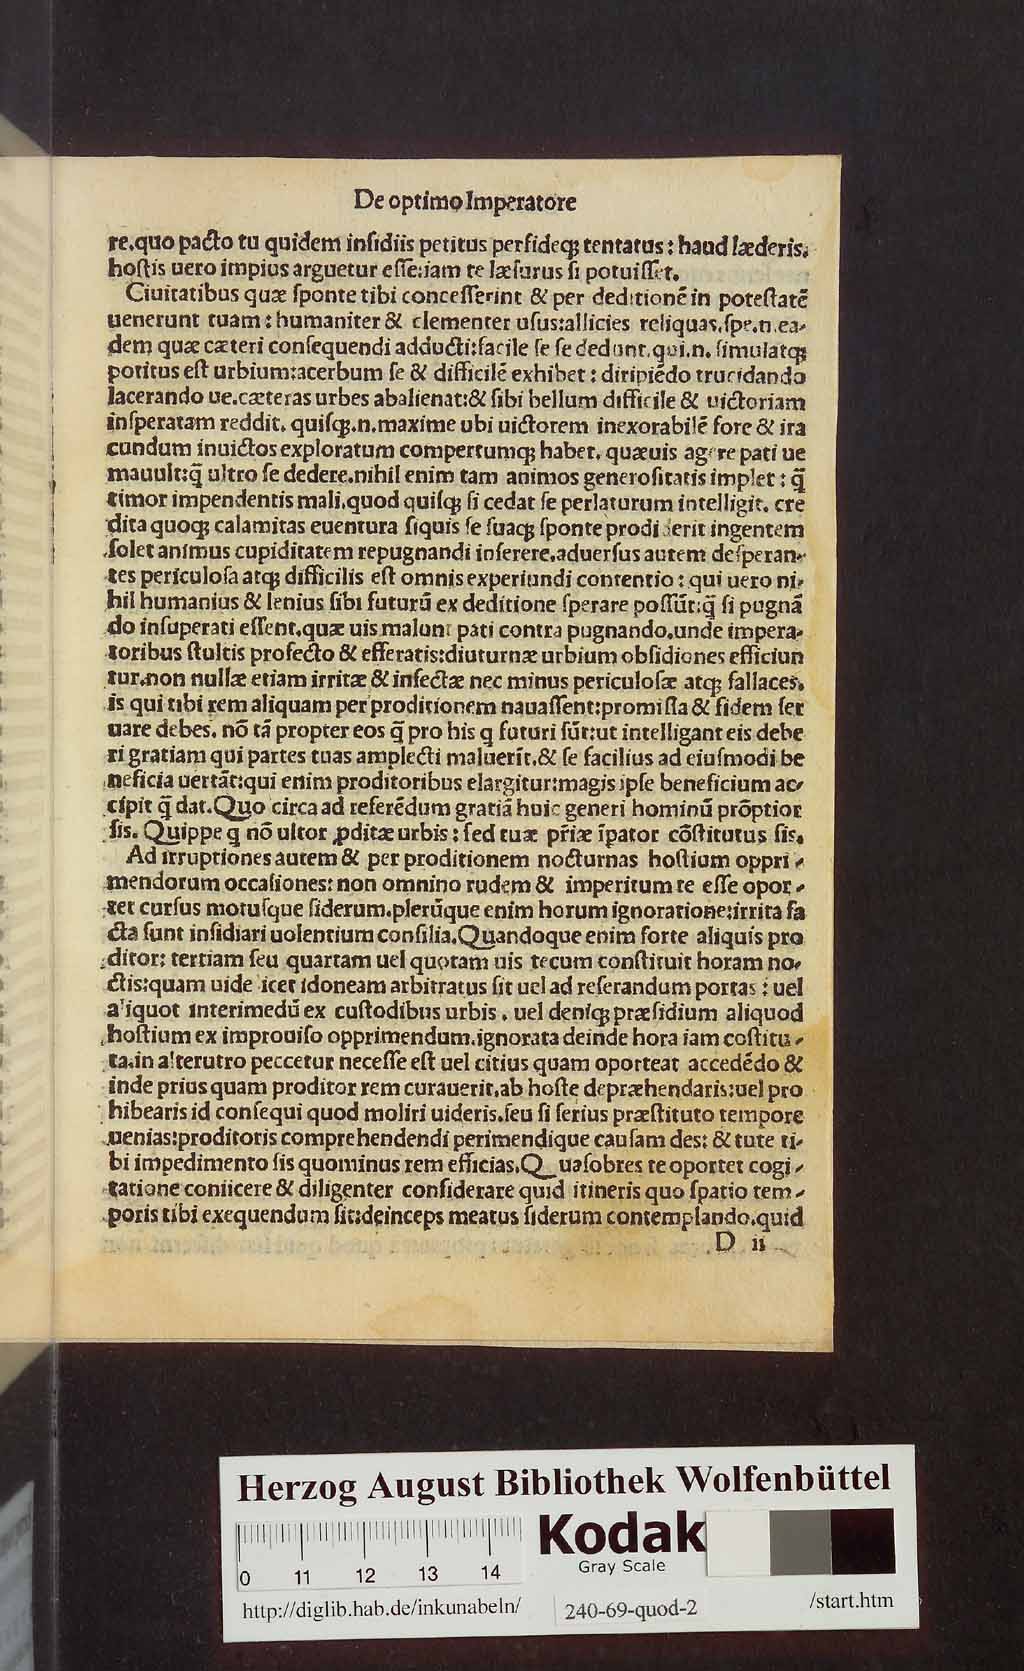 De optimo Imperatore
re.quo pacto tu quidem inſidiis petitus perfideqꝫ tentatus: haud læderis.
hoſtis uero impius arguetur eſſe:iam te læſurus ſi potuiſſet.
Ciuitatibus quæ ſponte tibi conceſſerint & per deditionē in poteſtatē
uenerunt tuam: humaniter & clementer uſus:allicies reliquas.ſpe.n.ea-
dem quæ cæteri conſequendi adducti:facile ſe ſe dedunt.qui.n. ſimulatqꝫ
potitus eſt urbium:acerbum ſe & difficilē exhibet: diripiēdo trucidando
lacerando ue.cæteras urbes abalienat:& ſibi bellum difficile & uictoriam
inſperatam reddit. quiſqꝫ.n.maxime ubi uictorem inexorabilē fore & ira
cundum inuictos exploratum compertumqꝫ habet. quæuis agere pati ue
mauult:q̄ ultro ſe dedere.nihil enim tam animos generoſitatis implet: q̄
timor impendentis mali.quod quiſqꝫ ſi cedat ſe perlaturum intelligit. cre
dita quoqꝫ calamitas euentura ſiquis ſe ſuaqꝫ ſponte prodiderit ingentem
ſolet animus cupiditatem repugnandi inſerere.aduerſus autem deſperan-
tes periculoſa atqꝫ difficilis eſt omnis experiundi contentio: qui uero ni-
hil humanius & lenius ſibi futurū ex deditione ſperare poſſūt:q̄ ſi pugnā
do inſuperati eſſent.quæ uis malunt pati contra pugnando.unde impera-
toribus ſtultis profecto & efferatis:diuturnæ urbium obſidiones efficiun
tur.non nullæ etiam irritæ & infectæ nec minus periculoſæ atqꝫ fallaces.
is qui tibi rem aliquam per proditionem nauaſſent:promiſſa & fidem ſer
uare debes. nō tā propter eos q̄ pro his q futuri ſūt:ut intelligant eis debe
ri gratiam qui partes tuas amplecti maluerīt.& ſe facilius ad eiuſmodi be
neficia uertāt:qui enim proditoribus elargitur:magis ipſe beneficium ac-
cipit q̄ dat.Quo circa ad referēdum gratiā huic generi hominū prōptior
ſis. Quippe q nō ultor ꝓditæ urbis: ſed tuæ pr̄iæ īpator cōſtitutus ſis.
Ad irruptiones autem & per proditionem nocturnas hoſtium oppri-
mendorum occaſiones: non omnino rudem & imperitum te eſſe opor-
tet curſus motuſque ſiderum.plerūque enim horum ignoratione:irrita fa
cta ſunt inſidiari uolentium conſilia.Quandoque enim forte aliquis pro
ditor: tertiam ſeu quartam uel quotam uis tecum conſtituit horam no-
ctis:quam uidelicet idoneam arbitratus ſit uel ad reſerandum portas: uel
aliquot interimedū ex cuſtodibus urbis. uel deniqꝫ præſidium aliquod
hoſtium ex improuiſo opprimendum.ignorata deinde hora iam coſtitu-
ta.in alterutro peccetur neceſſe eſt uel citius quam oporteat accedēdo &
inde prius quam proditor rem curauerit.ab hoſte depræhendaris:uel pro
hibearis id conſequi quod moliri uideris.ſeu ſi ſerius præſtituto tempore
uenias:proditoris comprehendendi perimendique cauſam des: & tute ti-
bi impedimento ſis quominus rem efficias.Q uaſobres te oportet cogi-
tatione coniicere & diligenter conſiderare quid itineris quo ſpatio tem-
poris tibi exequendum ſit:deinceps meatus ſiderum contemplando.quid
D ii
Herzog August Bibliothek Wolfenbüttel
Kodak
Gray Scale
0 11 12 13 14
http://diglib.hab.de/inkunabeln/ 240-69-quod-2 /start.htm